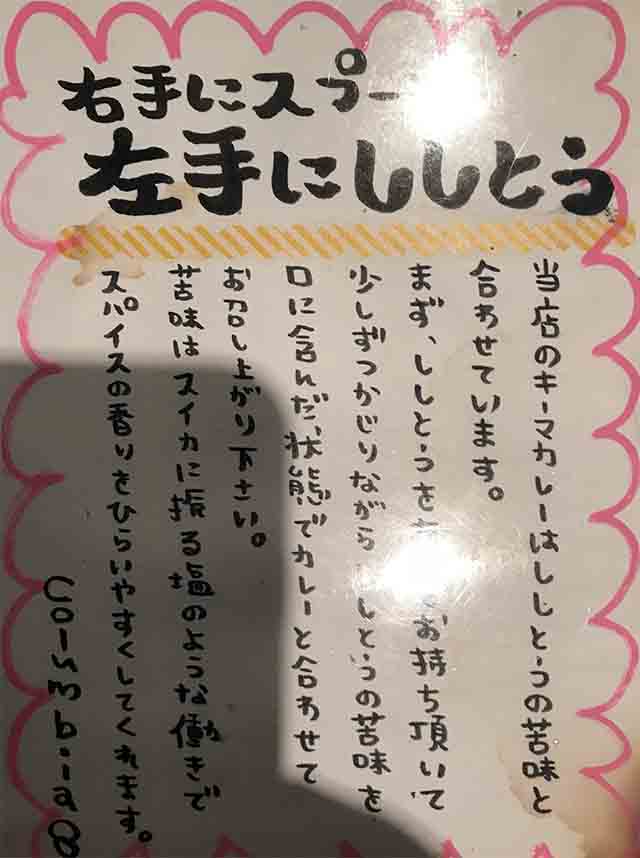 右手にスプー
左手にししとう
当店のキーマカレーはししとうの苦味と
合わせています。
まず、ししとうを お持ち頂いて
少しずつかじりながら しとうの苦味を
口に含んだ状態でカレーと合わせて
お召し上がり下さい。
苦味はスイカに振る塩のような働きで
スパイスの香りをひらいやすくしてくれます。
Columbia8